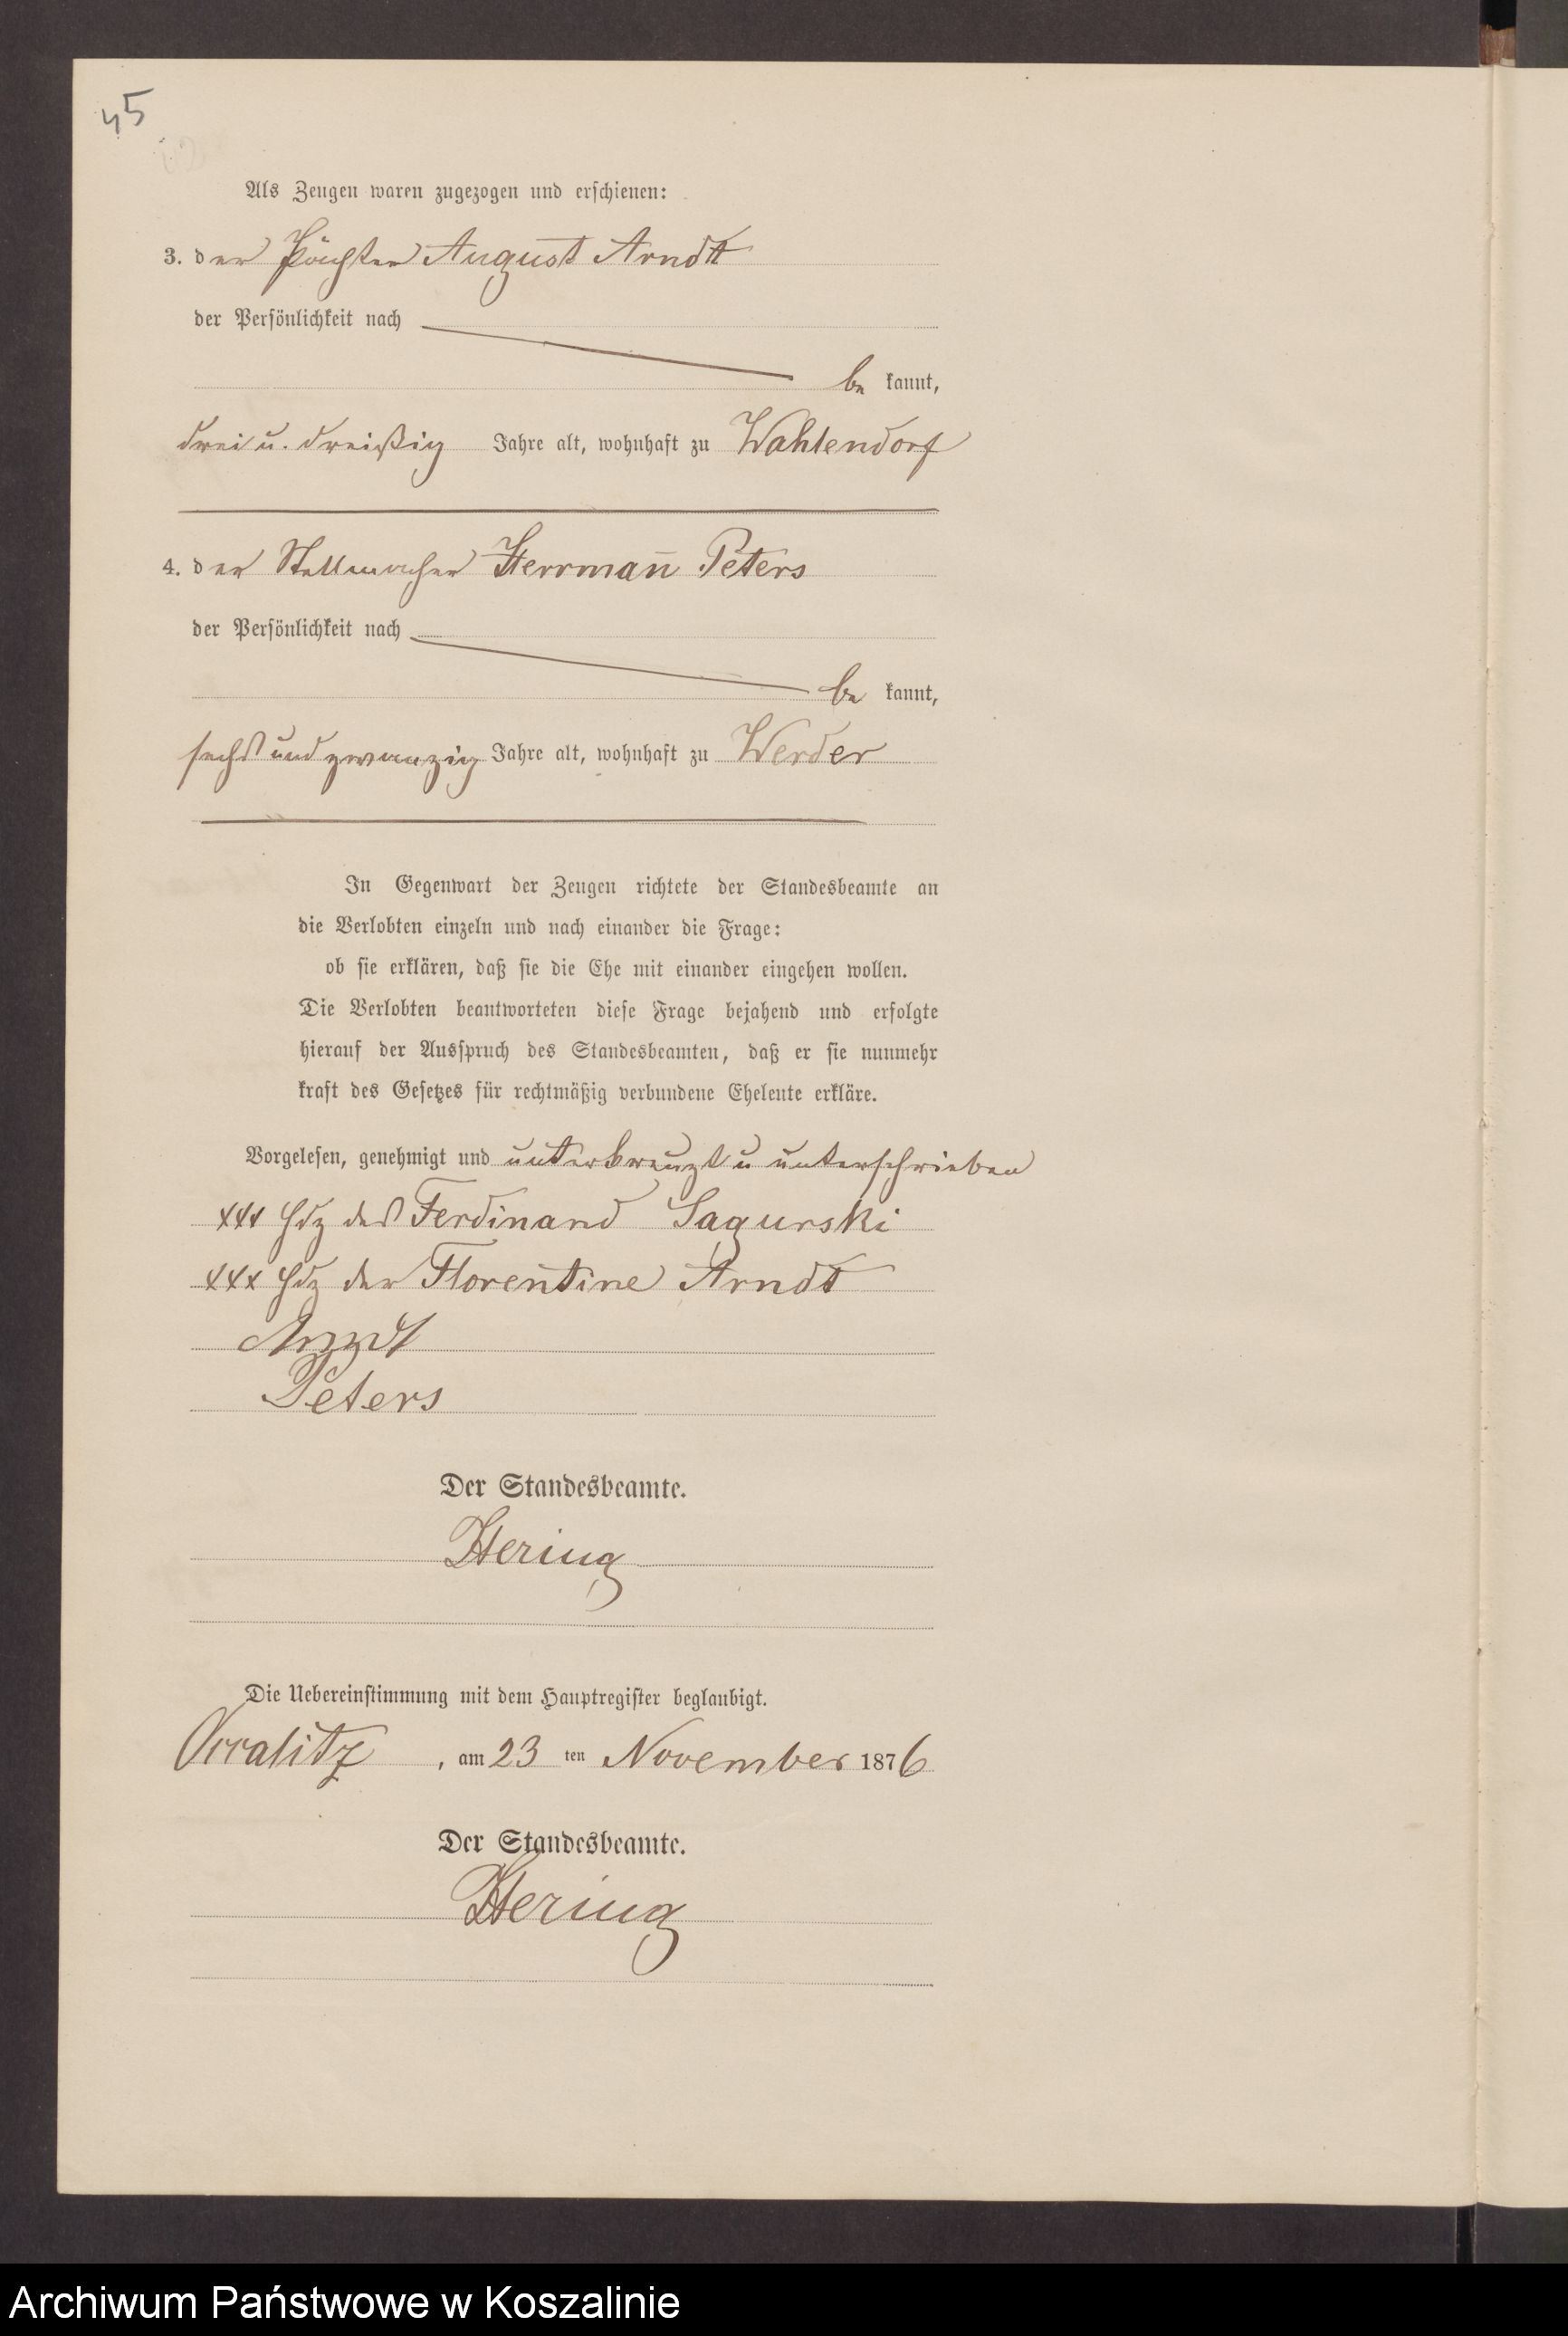 45
Als Zeugen waren zugezogen und erschienen:
3. der Pächter August Arndt
der Persönlichkeit nach
be kannt,
drei u. dreißig Jahre alt, wohnhaft zu Wahlendorf
4. der Stellmacher Herrman̄ Peters
der Persönlichkeit nach
be kannt,
sechs und zwanzig Jahre alt, wohnhaft zu Werder
In Gegenwart der Zeugen richtete der Standesbeamte an
die Verlobten einzeln und nach einander die Frage:
ob sie erklären, daß sie die Ehe mit einander eingehen wollen.
Die Verlobten beantworteten diese Frage bejahend und erfolgte
hierauf der Ausspruch des Standesbeamten, daß er sie nunmehr
kraft des Gesetzes für rechtmäßig verbundene Eheleute erkläre.
Vorgelesen, genehmigt und unterkreuzt u unterschrieben
xxx Hdz des Ferdinand Sagurski
xxx Hdz der Florentine Arndt
Arndt
Peters
Der Standesbeamte.
Hering
Die Uebereinstimmung mit dem Hauptregister beglaubigt.
, am 23 ten November 1876
Der Standesbeamte.
Hering
Archiwum Państwowe w Koszalinie